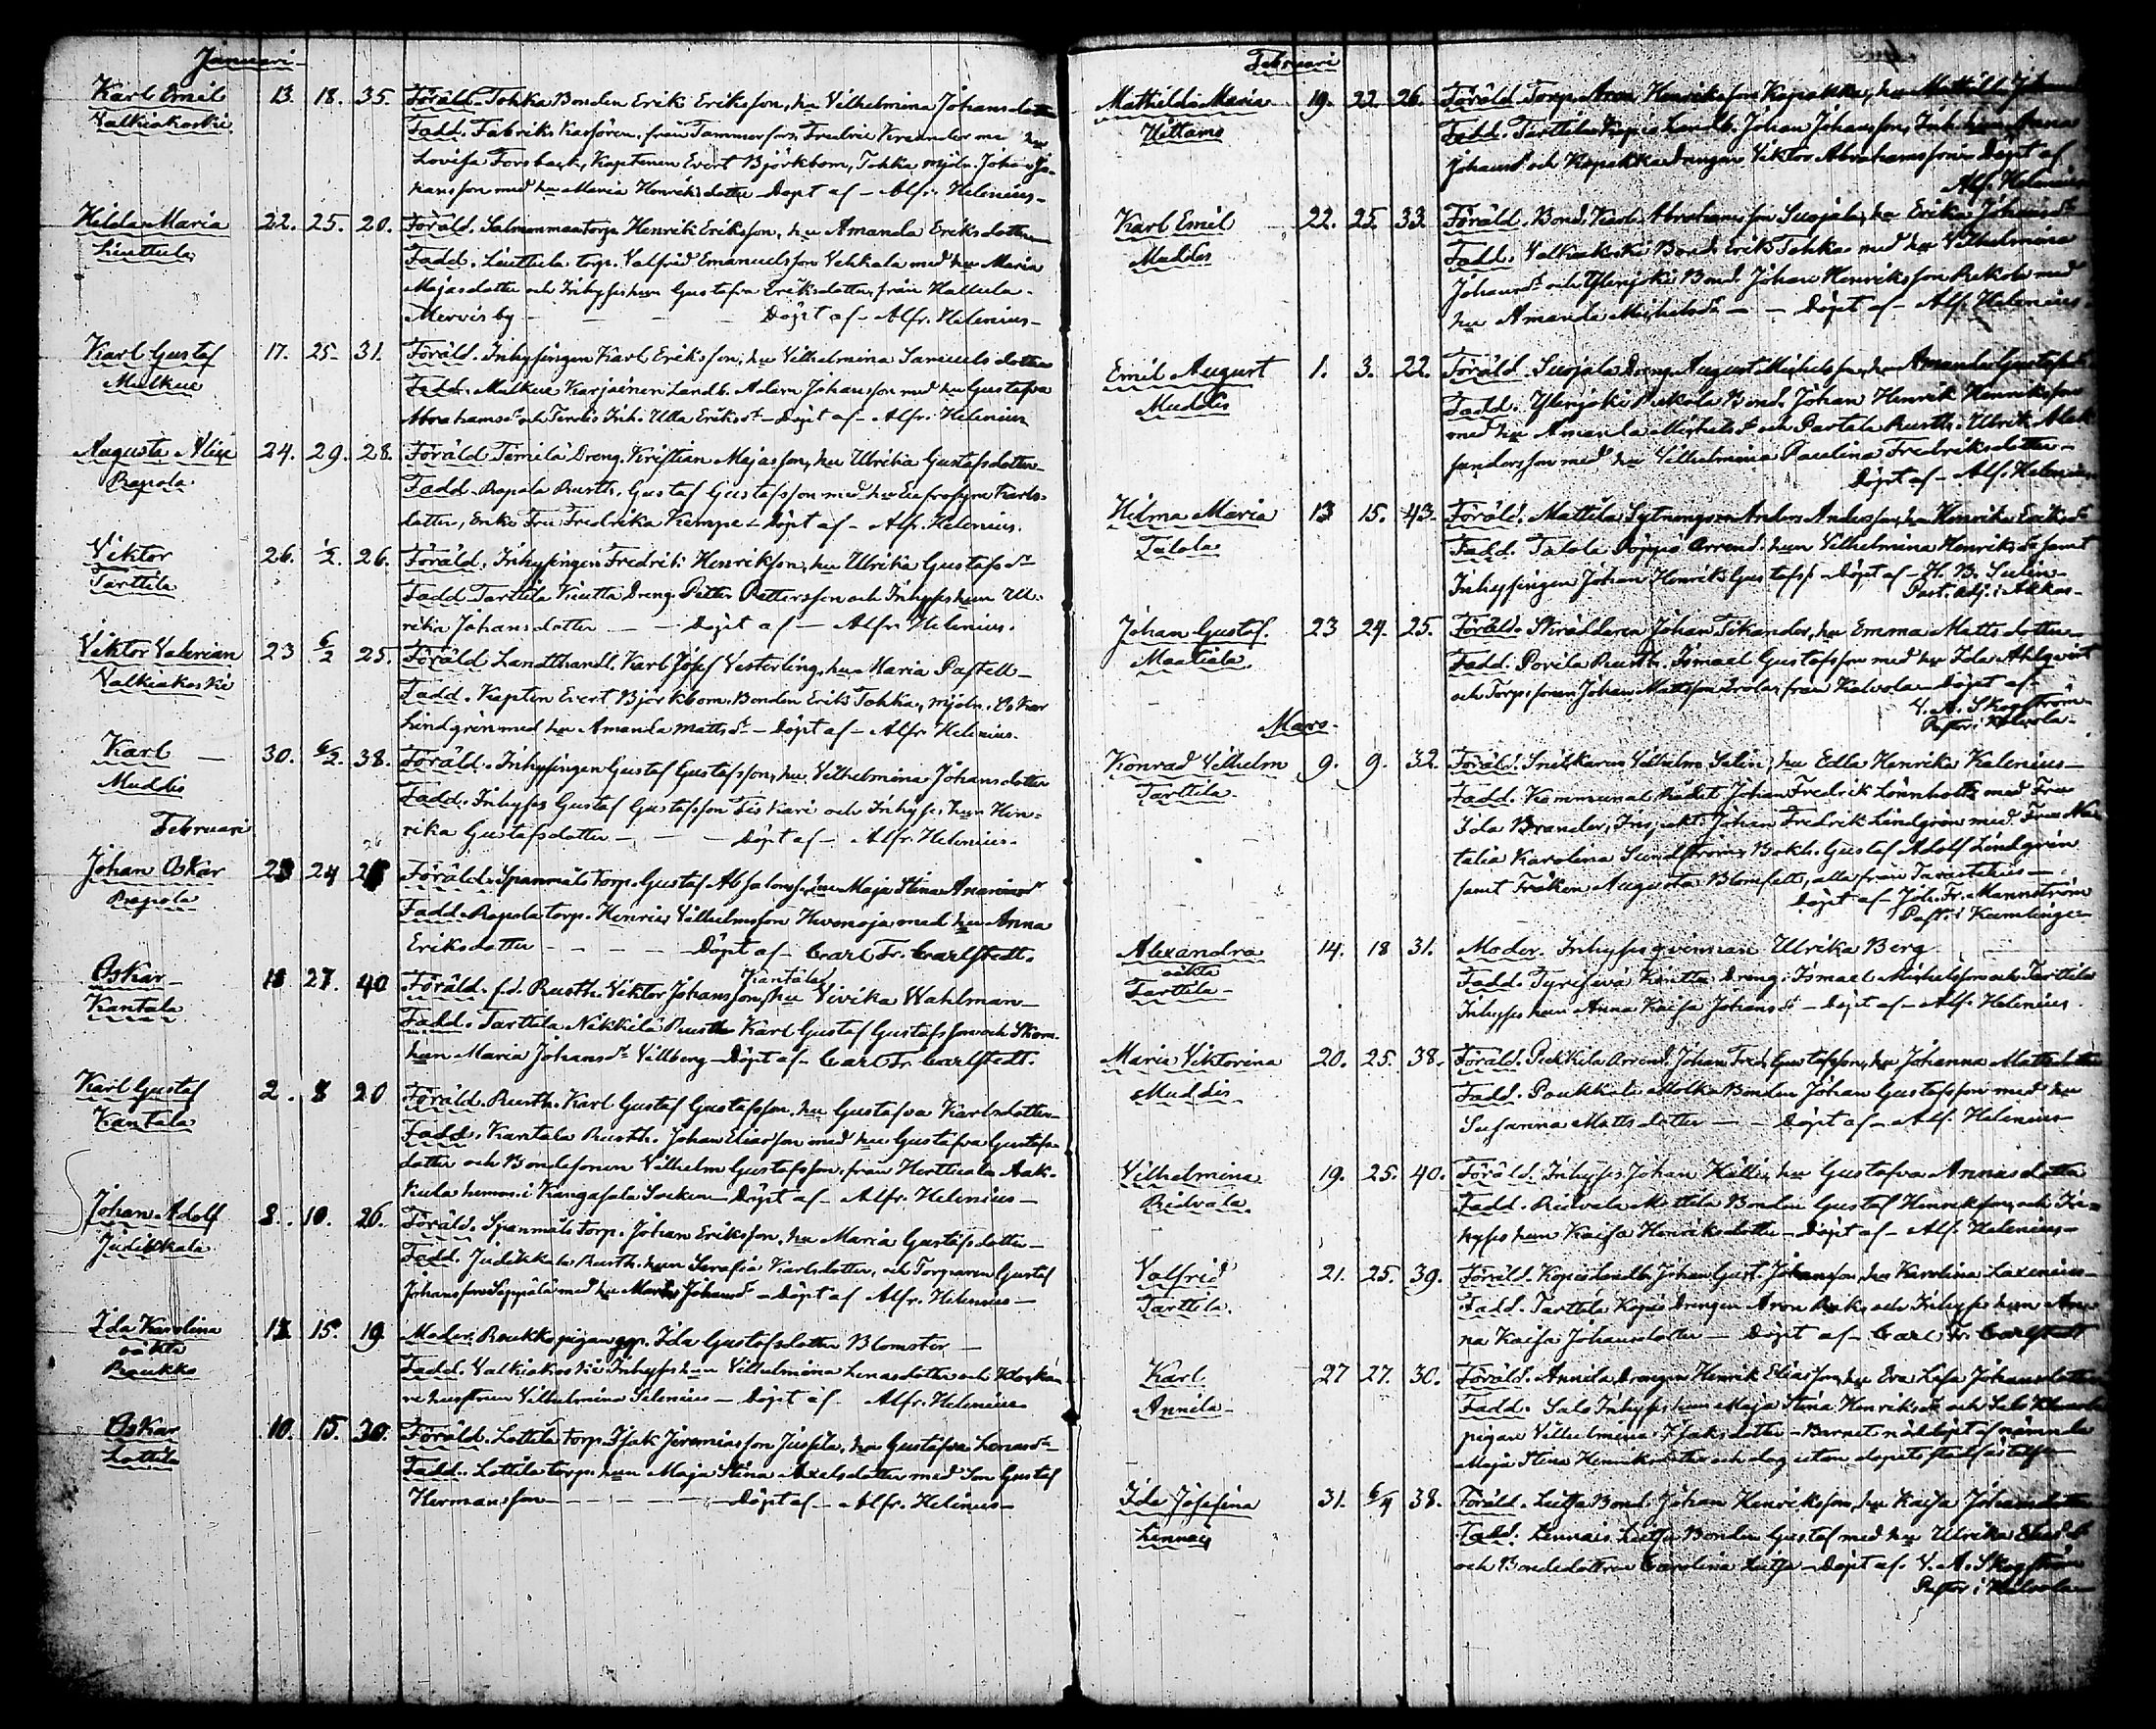 Januari
Karl Emil 13. 18. 35. Föräld. Tohka Bonden Erik Eriksson, hu Vilhelmina Johansdotter
Valkiakoski Fadd. Fabriks Karsören från Tammerfors Fredric hu
Lovisa Forsback, Kaptenen Evert Björkbom, Tohka mjöln. Johan Jo-
hansson med hu Maria Henriksdotter Döpt af Alfr. Helenius
Hilda Maria 22. 25. 20. Föräld. torp. Henrik Eriksson, hu Amanda Eriksdotter
Liuttula Fadd. Liuttula torp. Valfrid Emanuelsson Vehkala med hu Maria
Majasdotter och Inhyseshun Gustafva Eriksdotter, från Hattula
Mervis by - Döpt af - Alfr. Helenius
Karl Gustaf 17. 25 31. Föräld. Inhysingen Karl Eriksson, hu Vilhelmina Samuelsdotter
Malkue Fadd. Malkue Karjainen Landb. Adam Johansson med hu Gustafva
Abrahamsdr och Inh. Ulla Eriksdr - Döpt af - Alfr. Helenius
Augusta Alise 24. 29. 28. Föräld Tomila Dreng. Kristian Majasson, hu Ulrika Gustafsdotter
Rapola Fadd. Rapola Rusth. Gustaf Gustafsson med hu Eufrosyne Karls-
dotter, Enke Fru Fredrika Kempe - Döpt af - Alfr. Helenius.
Viktor 26. 1/2. 26. Föräld. Inhysingen Fredrik Henriksson, hu Ulrika Gustafsdr
Tarttila Fadd Tarttila Kiutta Dreng. Petter Pettersson och Inhyseshun Ul-
rika Johansdotter - Döpt af - Alfr. Helenius.
Viktor Valerian 23 6/2 25. Föräld Landthandl. Karl Josef Vesterling, hu Maria Pastell
Valkiakoski Fadd. Kapten Evert Björkbom. Bonden Erik Tohka, mjöln. Oskar
Lindgren med hu Amanda Mattsdr - Döpt af - Alfr. Helenius.
Karl 30. 6/2. 38. Föräld. Inhysingen Gustaf Gustafsson, hu Vilhelmina Johansdotter
Muddis Fadd. Inhyses Gustaf Gustafsson och Inhyses hun Hen-
Februari rika Gustafsdotter - Döpt af - Alfr. Helenius.
Johan Oskar 23 24 26 Föräld. Spanmäls torp. Gustaf Absalonsson, hu Maja Stina Ananiasdr
Rapola Fadd. Rapola torp. Henric Vilhelmsson Hevonoja med hu Anna
Eriksdotter - Döpt af - Carl Fr. Carlstedt.
Oskar 18 27. 40 Föräld. f.d. Rusth. Viktor Johansson Kantala, hu Vivika Wahlman
Kantala Fadd. Tarttila Nikkilä Rusth. Karl Gustaf Gustafsson och Skom.
hun Maria Johansdr Villberg - Döpt af - Carl Fr. Carlstedt.
Karl Gustaf 2. 8 20 Föräld. Rusth. Karl Gustaf Gustafsson, hu Gustafva Karlsdotter
Kantala Fadd. Kantala Rusth. Johan Eliasson med hu Gustafva Gustafs-
dotter och Bondesonen Vilhelm Gustafsson från Herttuala Aak-
kula hemm. i Kangasala Socken - Döpt af - Alfr. Helenius
Johan Adolf 8. 10. 26. Föräld. Spanmäls torp. Johan Eriksson, hu Maria Gustafsdotter
Judikkala Fadd. Judikkala Rusth. hun Serafia Karlsdotter, och Torparen Gustaf
Johansson Seppälä med hu Maria Johansdr - Döpt af Alfr. Helenius
Ida Karolina 12 15 19 Moder. Roukko pigan Ida Gustafsdotter Blomster
oäkta Fadd. Valkiakoski Inhyses hun Vilhelmina Lenasdotter och Klocka-
Roukko rehustrun Vilhelmina Selenius - Döpt af Alfr. Helenius
Oskar 10. 15. 30. Föräld. Lottila torp. Isak Jeremiasson Jussila, hu Gustafva Lenasdr
Lottila Fadd. Lottila torp. hun Maja Stina Axelsdotter med Son Gustaf
Hermansson - Döpt af - Alfr. Helenius
Februari
Mathilda Maria 19. 22. 26. Föräld. Torp. Aron Henriksson Kopakka, hu Mathild
Uittamo Fadd. Tarttila Kopis Landb. Johan Johansson, Anna
Johansdr och Kopakka Drengen Viktor Abrahamsson Döpt af
Alfr. Helenius
Karl Emil 22. 25. 33. Föräld. Bond. Karl Abrahamsson Suojala, hu Erika Johansdr
Muddis Fadd. Valkiakoski Bond. Erik Tohka med hu Vilhelmina
Johansdr och Ylenjoki Bond. Johan Henriksson Rekola med
hu Amanda Michelsdr - Döpt af - Alfr. Helenius.
Emil August 1. 3. 22. Föräld. Suojala Dreng. August Michelsson, hu Amanda Gustafsdr
Muddis Fadd. Ylenjoki Rekola Bond. Johan Henrik Henriksson
med hu Amanda Michelsdr och Partala Rusth. Ulrik Alek-
sandersson med hu Vilhelmina Paulina Fredriksdotter
Döpt af - Alfr. Helenius
Hilma Maria 13 15. 43. Föräld. Mattila Sytningsm Anders Andersson, hu Henrika Eriksdr
Talola Fadd. Talola arrend. hun Vilhelmina Henriksdr samt
Inhysingen Johan Henrik Gustafss. - Döpt af - H. B.
Past. adj. i Akkas
Johan Gustaf. 23 24. 25. Föräld. Skräddaren Johan Tikander, hu Emma Mattsdotter
Maatiala Fadd. Rusth. Ismael Gustafsson med hu Ida Ahlqvist
och Torp. sonen Johan Mattsson från Kalvola - Döpt af
V. A. Skogström
Pastor i Kalvola
Mars
Konrad Vilhelm 9. 9. 32. Föräld. Snickaren Vilhelm Salin, hu Edla Henrika Kalenius
Tarttila. Fadd. Kommunal Rådet Johan Fredrik Lönnholtz med Fru
Ida Brander, Inspekt. Johan Fredrik Lindgren med Fru Na-
talia Karolina Sundström, Bokh. Gustaf Adolf Lindgren
samt Fröken Augusta Blomfelt, alla från Tavastehus
Döpt af - Joh. Fr. Mannström
Past. i Kumlinge
Alexandra 14. 18 31. Moder. Inhysesqvinnan Ulrika Berg
oäkta Fadd. Tyrisevä Kiutta Dreng. Ismael Michelsson och Tarttila
Tarttila Inhyses hun Anna Kaisa Johansdr - Döpt af - Alfr. Helenius
Maria Viktorina 20. 25. 38. Föräld. Arrend. Johan Fred. Gustafsson, hu Johanna Mattsdotter
Muddis Fadd. Bonden Johan Gustafsson med hu
Susanna Mattsdotter - Döpt af - Alfr. Helenius
Vilhelmina 19. 25. 40. Föräld. Inhyses Johan Källi, hu Gustafva Annasdotter
Ridvala Fadd. Ridvala Mattila Bonden Gustaf Henriksson, och In-
hyses hun Kaisa Henriksdotter - Döpt af - Alfr. Helenius
Valfrid 21. 25. 39. Föräld. Kopis Landb. Johan Gust. Johansson, hu Karolina Laxenius
Tarttila. Fadd. Tarttila Kopis Drengen Aron och Inhyses hun An-
na Kaisa Johansdotter - Döpt af - Carl Fr. Carlstedt
Karl 27 27. 30. Föräld. Annila Drengen Henrik Eliasson, hu Eva Lisa Johansdotter
Annila Fadd. Salo Inhyses hun Maja Stina Henriksdr och Salo
pigan Vilhelmina Isaksdotter - Barnet nöddöpt af nämnda
Maja Stina Henriksdotter och dog utan dopets stadfästelse
Ida Josefina 31. 6/4 38. Föräld. Lutsa Bond. Johan Henriksson, hu Kaisa Johansdotter
Linnais Fadd. Linnais Lutsa Bonden Gustaf med hu Ulrika
och Bondedottern Carolina Lutsa - Döpt af V. A. Skogström
Pastor i Kalvola